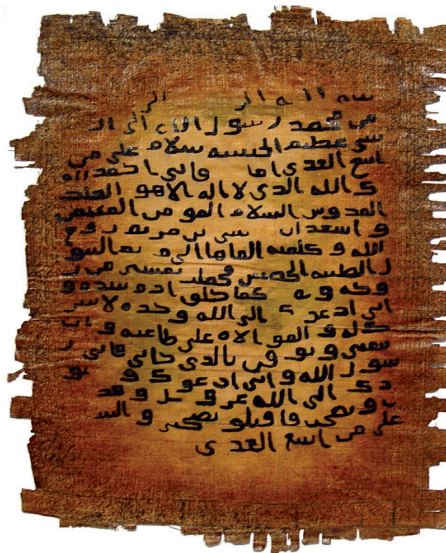 الله الر الر
من محمد رسول الله الى ال
شى عظيم الحبشه سلام على من
اتبع الهدى اما فانى احمد
ك الله الذى لا اله الا هو الملك
القدوس السلام المومن المهيمن
و اشهد ان سى بن مريم روح
الله و كلمته القاها الى مريم البتو
ل الطيبه الحصينه فحملت بعيسى من ر
وحه و كما خلق ادم بيده و
انى ادعوك الى الله وحده لا شر
يك له و الموالاه على طاعته و ان
تتبعنى وتو من بالذى جانى فانى ر
سول الله و انى ادعوك و
دك الى الله عز و جل و قد
و نصحت فاقبلو نصحى و الس
على من اتبع الهدى